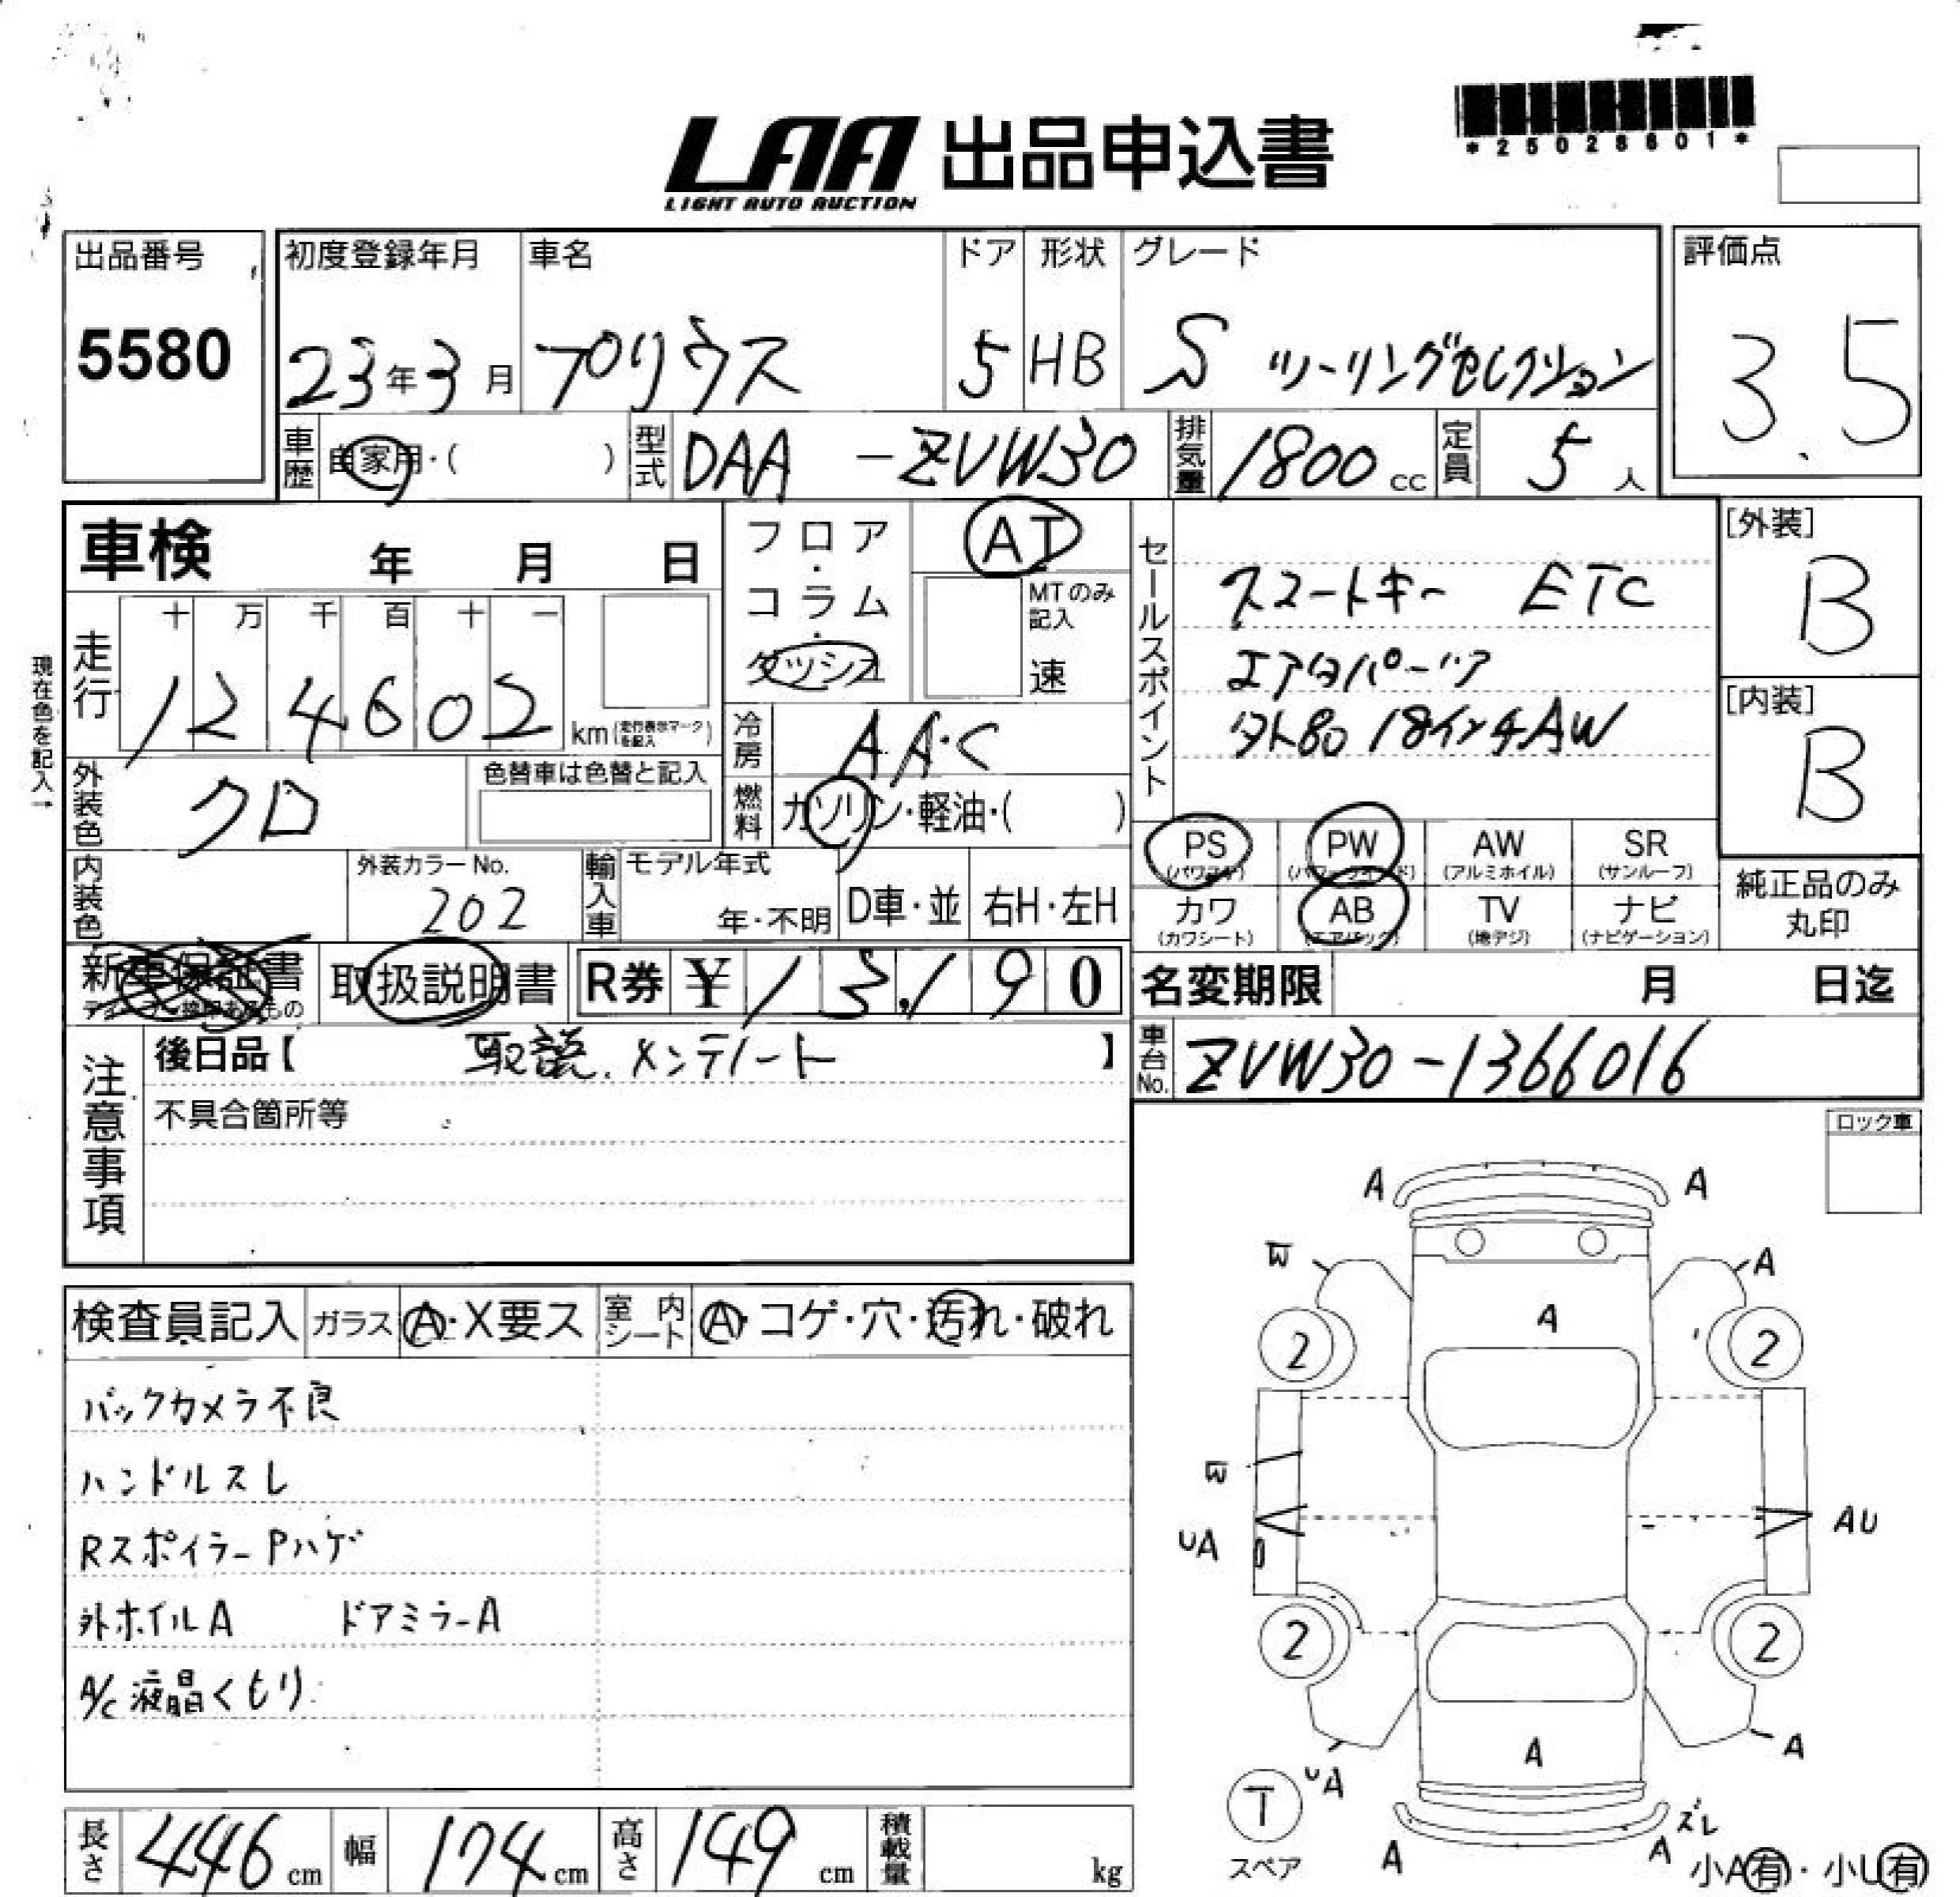 *25028601*
LAA 出品申込書
LIGHT AUTO AUCTION
出品番号
5580
初度登録年月
23年3月
車名
プリウス
ドア
5
形状
HB
グレード
S ツーリングセレクション
評価点
3.5
車歴
自家用・( )
型式
DAA -ZVW30
排気量
1800cc
定員
5人
車検 年 月 日
フロア・コラム・ダッシュ
AT
MTのみ記入
速
現在色を記入→
走行
十 万 千 百 十 一
124602
km(走行表示マークを記入)
冷房
AA・C
燃料
ガソリン・軽油・( )
外装色
クロ
色替車は色替と記入
内装色
外装カラーNo.
202
輸入車
モデル年式
年・不明
D車・並
右H・左H
セールスポイント
スマートキー ETC
エアロパーツ
18インチAW
[外装]
B
[内装]
B
PS
(パワステ)
PW
(パワーウィンド)
AW
(アルミホイル)
SR
(サンルーフ)
カワ
(カワシート)
AB
(エアバック)
TV
(地デジ)
ナビ
(ナビゲーション)
純正品のみ
丸印
新車保証書
取扱説明書
R券 ¥13,190
名変期限 月 日迄
車台No.
ZVW30-1366016
注意事項
後日品【 取説.メンテノート 】
不具合箇所等
ロック車
検査員記入
ガラス
A・X要ス
室内シート
A・コゲ・穴・汚れ・破れ
バックカメラ不良
ハンドルスレ
RスポイラーPハゲ
外ホイルA ドアミラーA
A/C液晶くもり
A A
W A
A
2 2
W
UA AU
2 2
A
UA A
T
スペア
A A ズレ
小A有・小U有
長さ
446cm
幅
174cm
高さ
149cm
積載量
kg